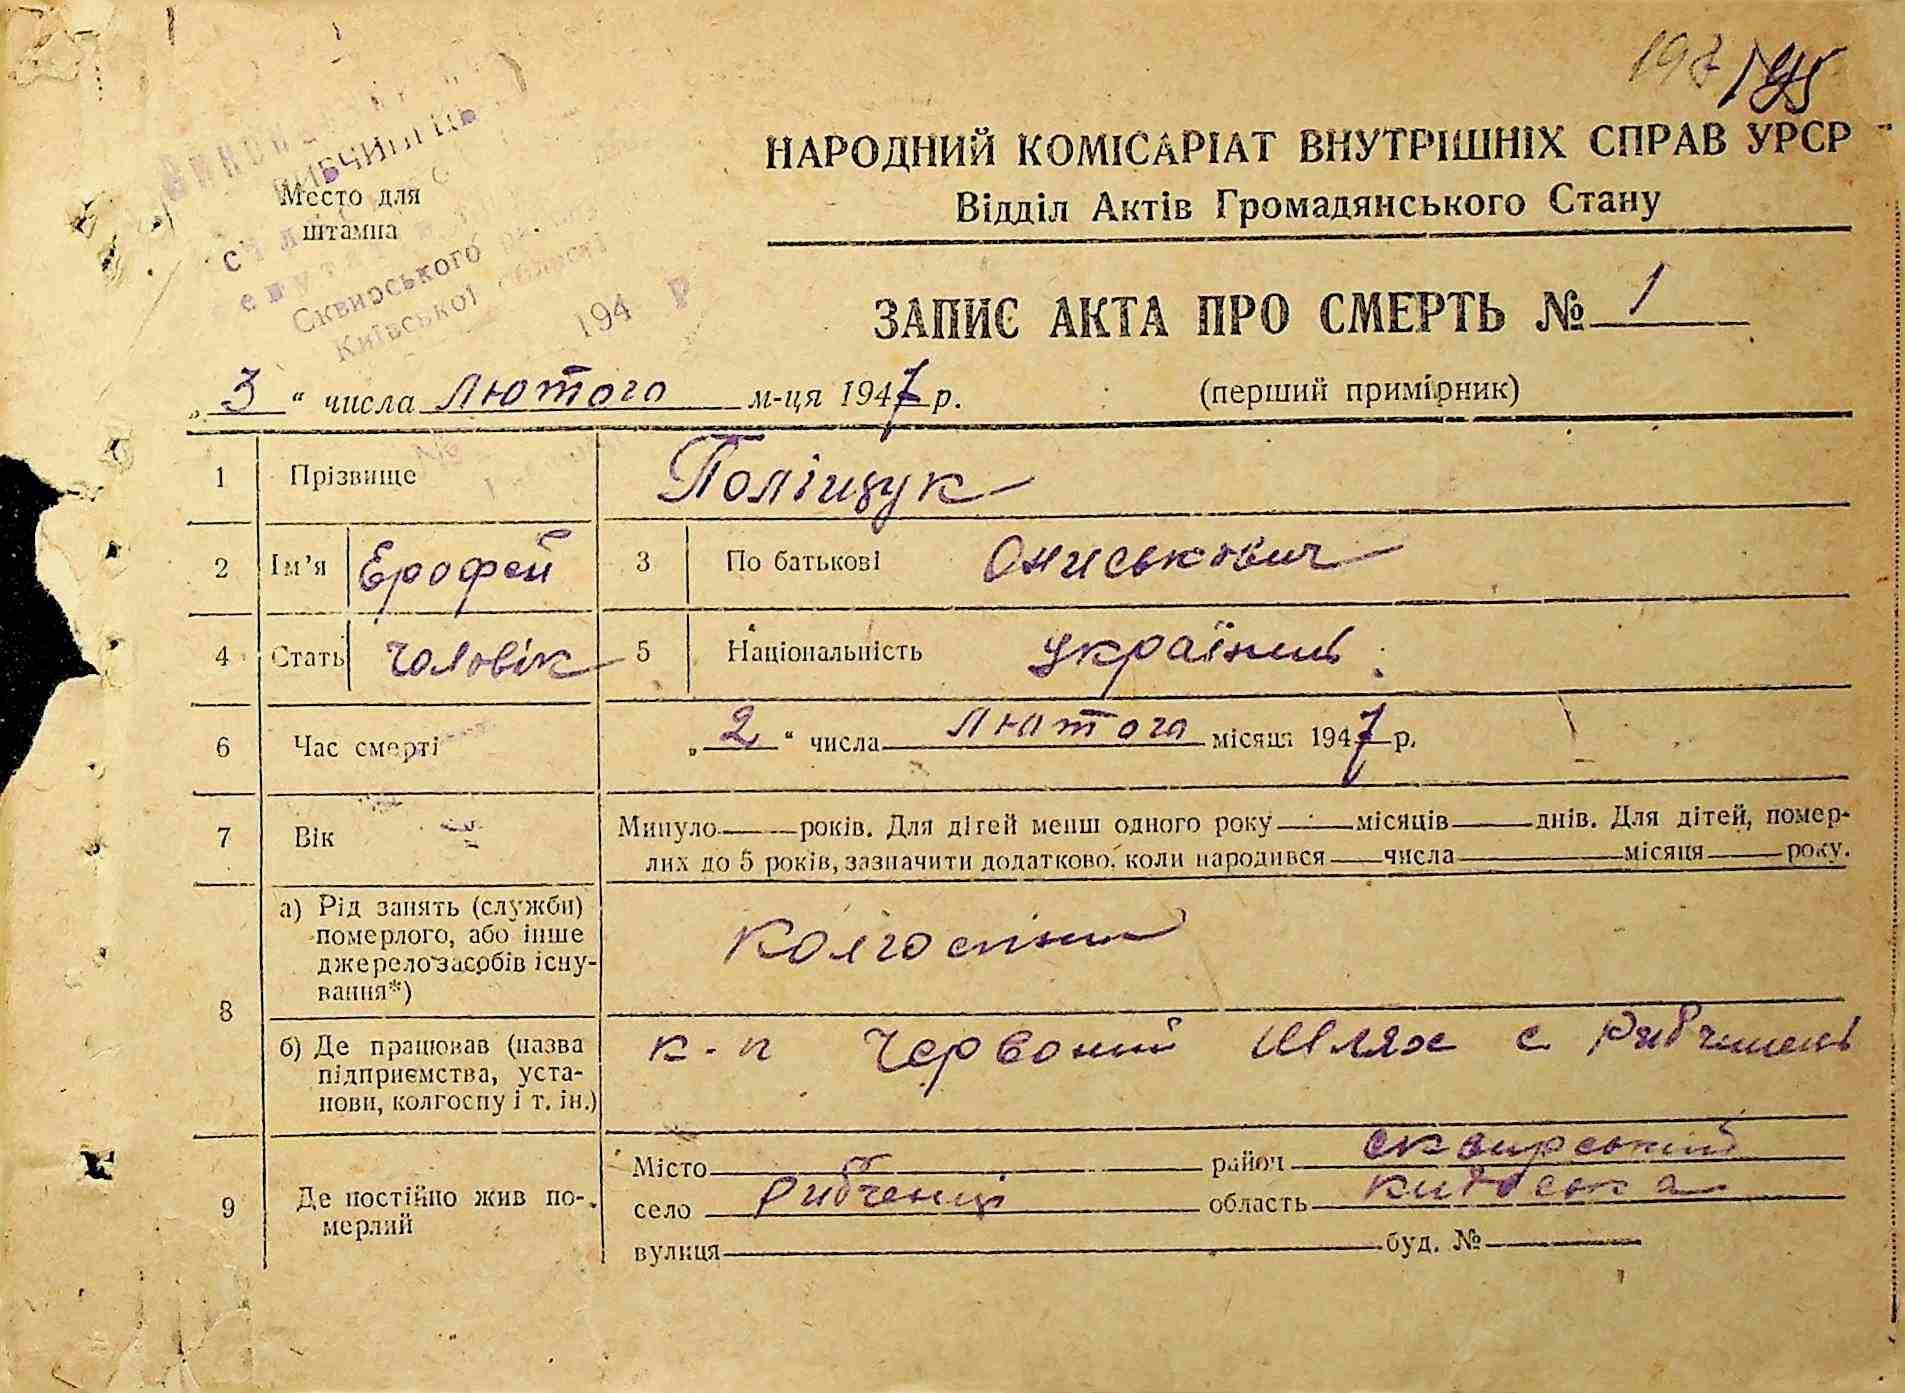 195
НАРОДНИЙ КОМІСАРІАТ ВНУТРІШНІХ СПРАВ УРСР
Відділ Актів Громадянського Стану
Место для
штампа
Сквирського
Київської області
194 р
ЗАПИС АКТА ПРО СМЕРТЬ № 1
„ 3 “ числа лютого м-ця 1947 р.
(перший примірник)
1 Прізвище Поліщук
2 Ім’я Ерофей 3 По батькові Ониськович
4 Стать чоловік 5 Національність українець
6 Час смерті „ 2 “ числа лютого місяця 1947 р.
7 Вік Минуло року років. Для дітей менш одного року місяців днів. Для дітей, помер-
лих до 5 років, зазначити додатково, коли народився числа місяця року.
8 а) Рід занять (служби)
померлого, або інше
джерело засобів існу-
вання*)
колгоспник
б) Де працював (назва
підприємства, уста-
нови, колгоспу і т. ін.)
к-п Червоний Шлях с Рибчинець
9 Де постійно жив по-
мерлий
Місто район сквирський
село Рибченці область київська
вулиця буд. №